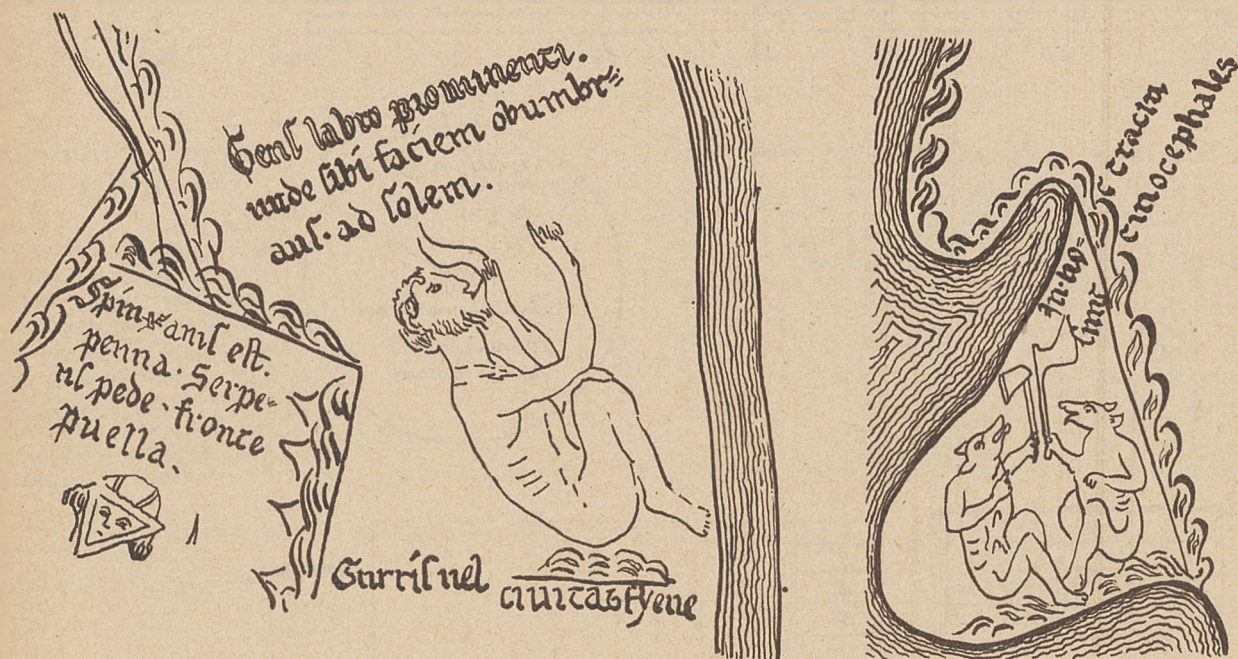 Gens labro prominenti.
unde sibi faciem obumbr=
ans. ad solem.
Spinx auis est.
penna. Serpe=
ns pede. fronte
puella.
Turris uel
ciuitas syene
tracia
cinocephales
sunt